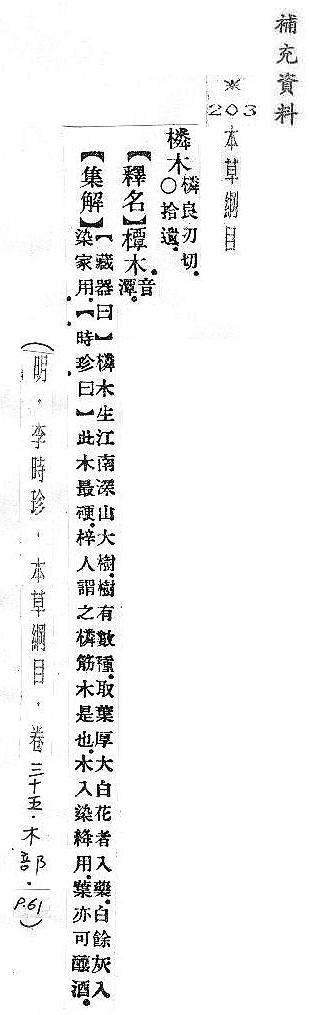 補充資料
※
203
本草綱目
橉木橉良刃切。
○拾遺。
【釋名】橝木音
潭。
【集解】【藏器曰】橉木生江南深山大樹。樹有數種。取葉厚大白花者入藥。白餘灰入
染家用。【時珍曰】此木最硬。梓人謂之橉筋木是也。木入染絳用。葉亦可釀酒。
(明．李時珍．本草綱目．卷三十五．木部．P.61)